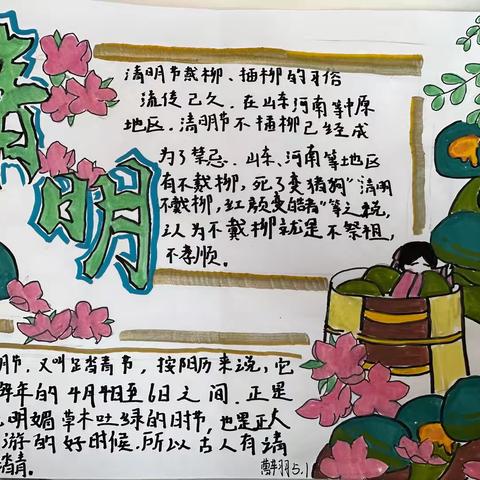 清明
清明节戴柳、插柳的习俗
流传已久。在山东河南等中原
地区,清明节不插柳已经成
为了禁忌。山东、河南等地区
有不戴柳,死了变猪狗”清明
不戴柳,红颜变皓首”等之说,
认为不戴柳就是不祭祖,
不孝顺。
明节,又叫足踏青节,按阳历来说,它
年的4月4日至6日之间,正是
明媚草木吐绿的日节,也是正人
游的好时候,所以古人有清
踏青。
羽5.1